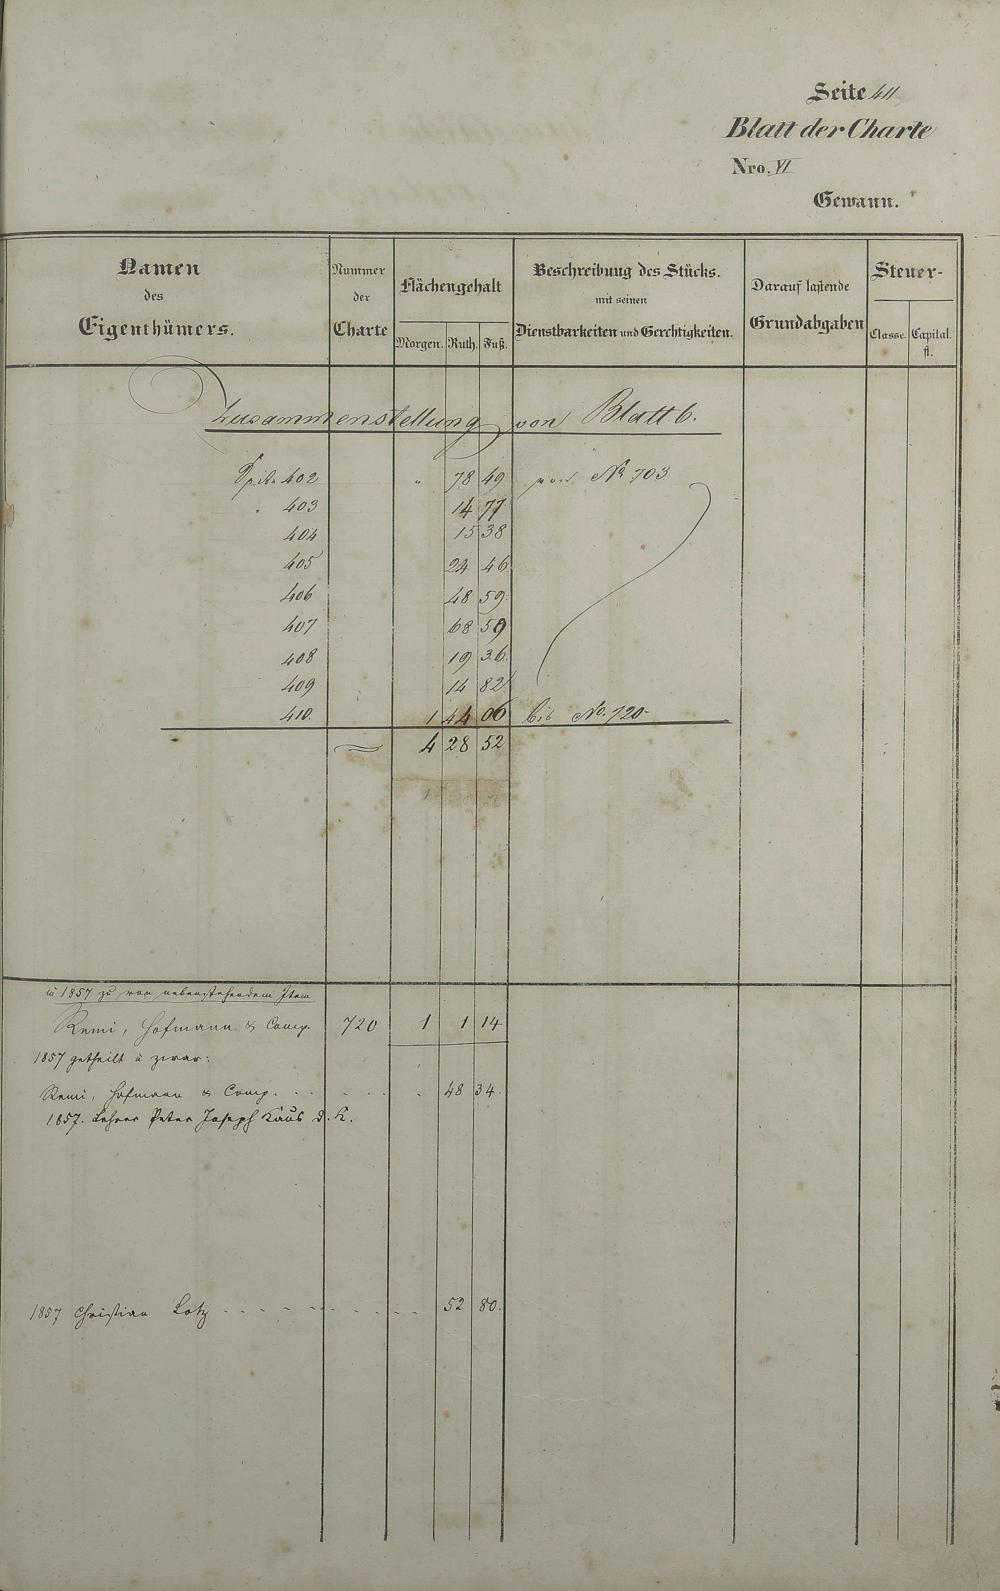 Seite 411
Blatt der Charte
Nro. VI
Gewann.
Namen des Eigenthümers.
Nummer der Charte
Flächengehalt
Morgen. Ruth. Fuß.
Beschreibung des Stücks. mit seinen Dienstbarkeiten und Gerechtigkeiten.
Darauf lastende Grundabgaben
Steuer-
Classe. Capital. fl.
Zusammenstellung von Blatt 6.
Seite 402 " 78 49 von No 703
" 403 14 77
404 15 38
405 24 46
406 48 59
407 68 59
408 19 36
409 14 82
410. 1 44 06 bis No. 720
4 28 52
1857 zu von nebenstehendem Item
Remi, Hofmann & Comp. 720 1 1 14
1857 getheilt à zwar:
Remi, Hofmann & Comp. . . . . . . 48 34.
1857. Lehrer Peter Joseph Kaus d. K.
1857 Christian Lotz 52 80.